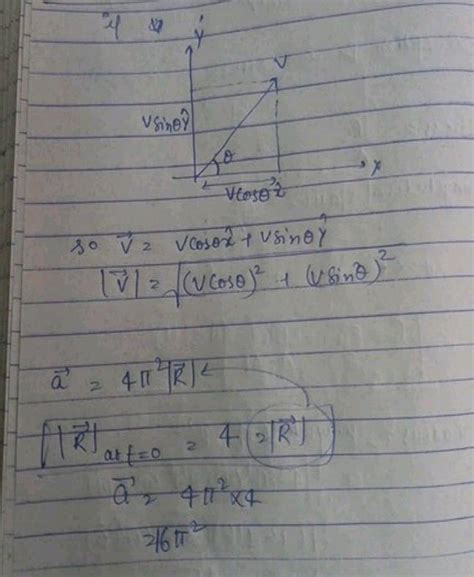 ŷ
V
Vsinθŷ
θ
x
Vcosθx̂
so V⃗ = Vcosθx̂ + Vsinθŷ
|V⃗| = √(Vcosθ)² + (Vsinθ)²
a⃗ = 4π²|R⃗|
|R⃗| at t=0 = 4 = |R⃗|
a⃗ = 4π²×4
=16π²